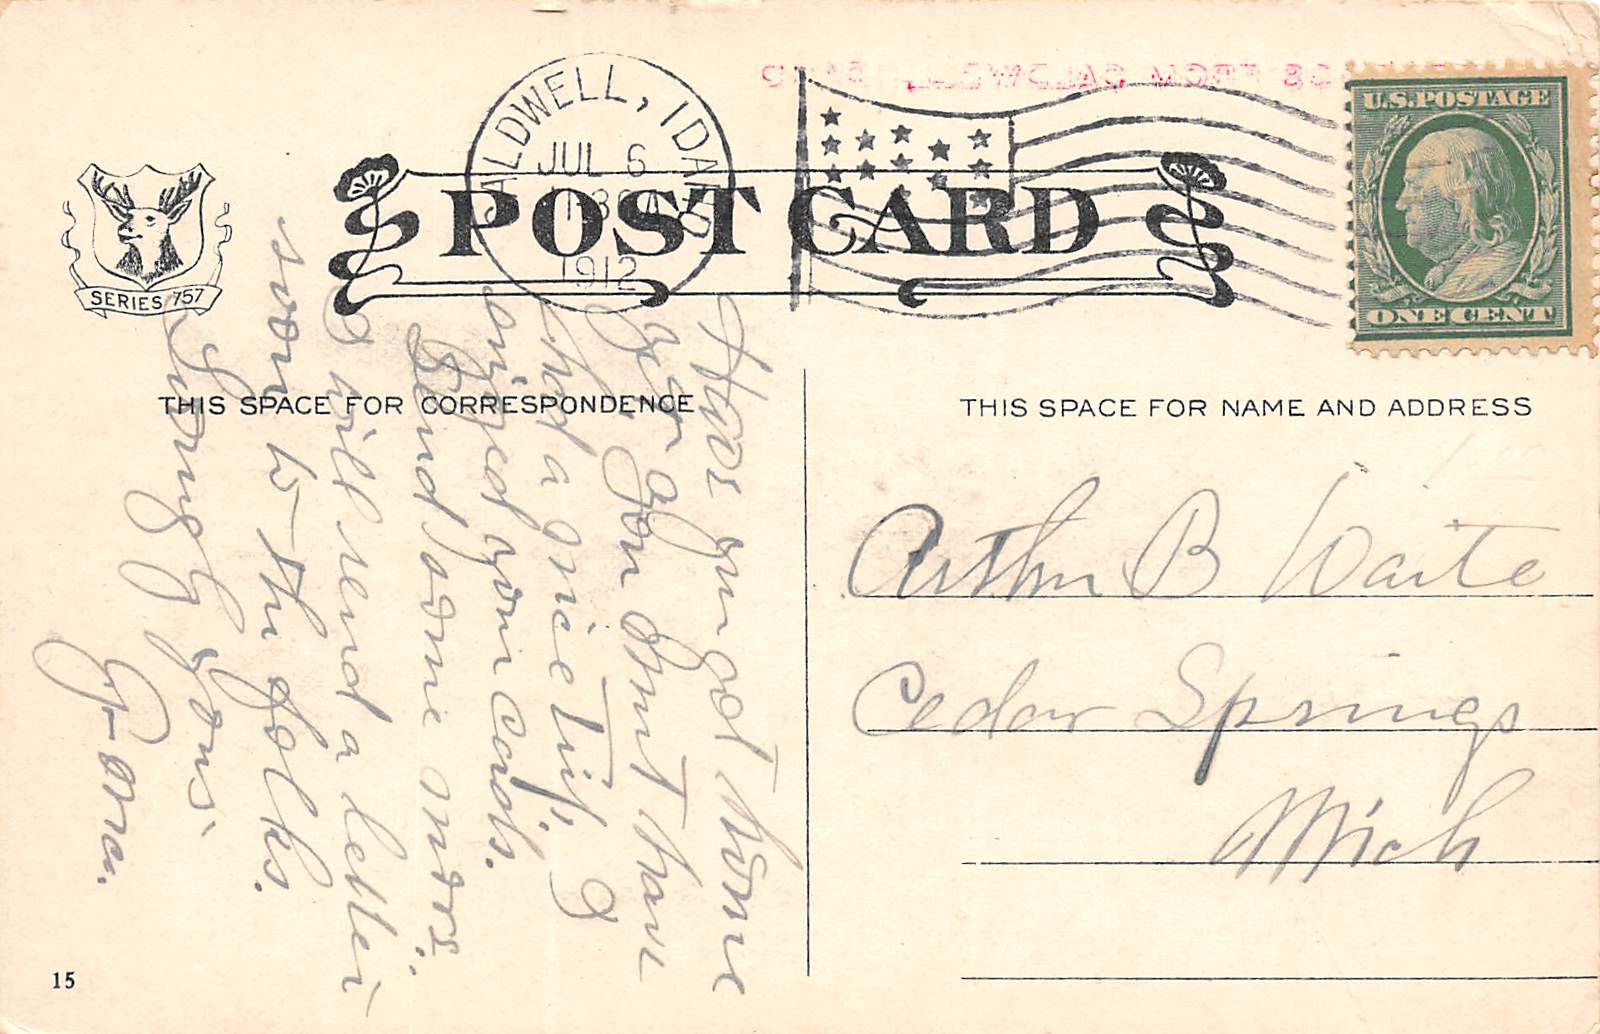 CALDWELL, IDAHO
JUL 6
1912
U.S. POSTAGE
ONE CENT
SERIES 757
POST CARD
THIS SPACE FOR CORRESPONDENCE
THIS SPACE FOR NAME AND ADDRESS
Have you got home
yet you must have
had a nice trip. I
enjoyed your cards.
Send some more.
I will send a letter
soon to the folks.
Lovingly yours
Arthur B Waite
Cedar Springs
Mich
15